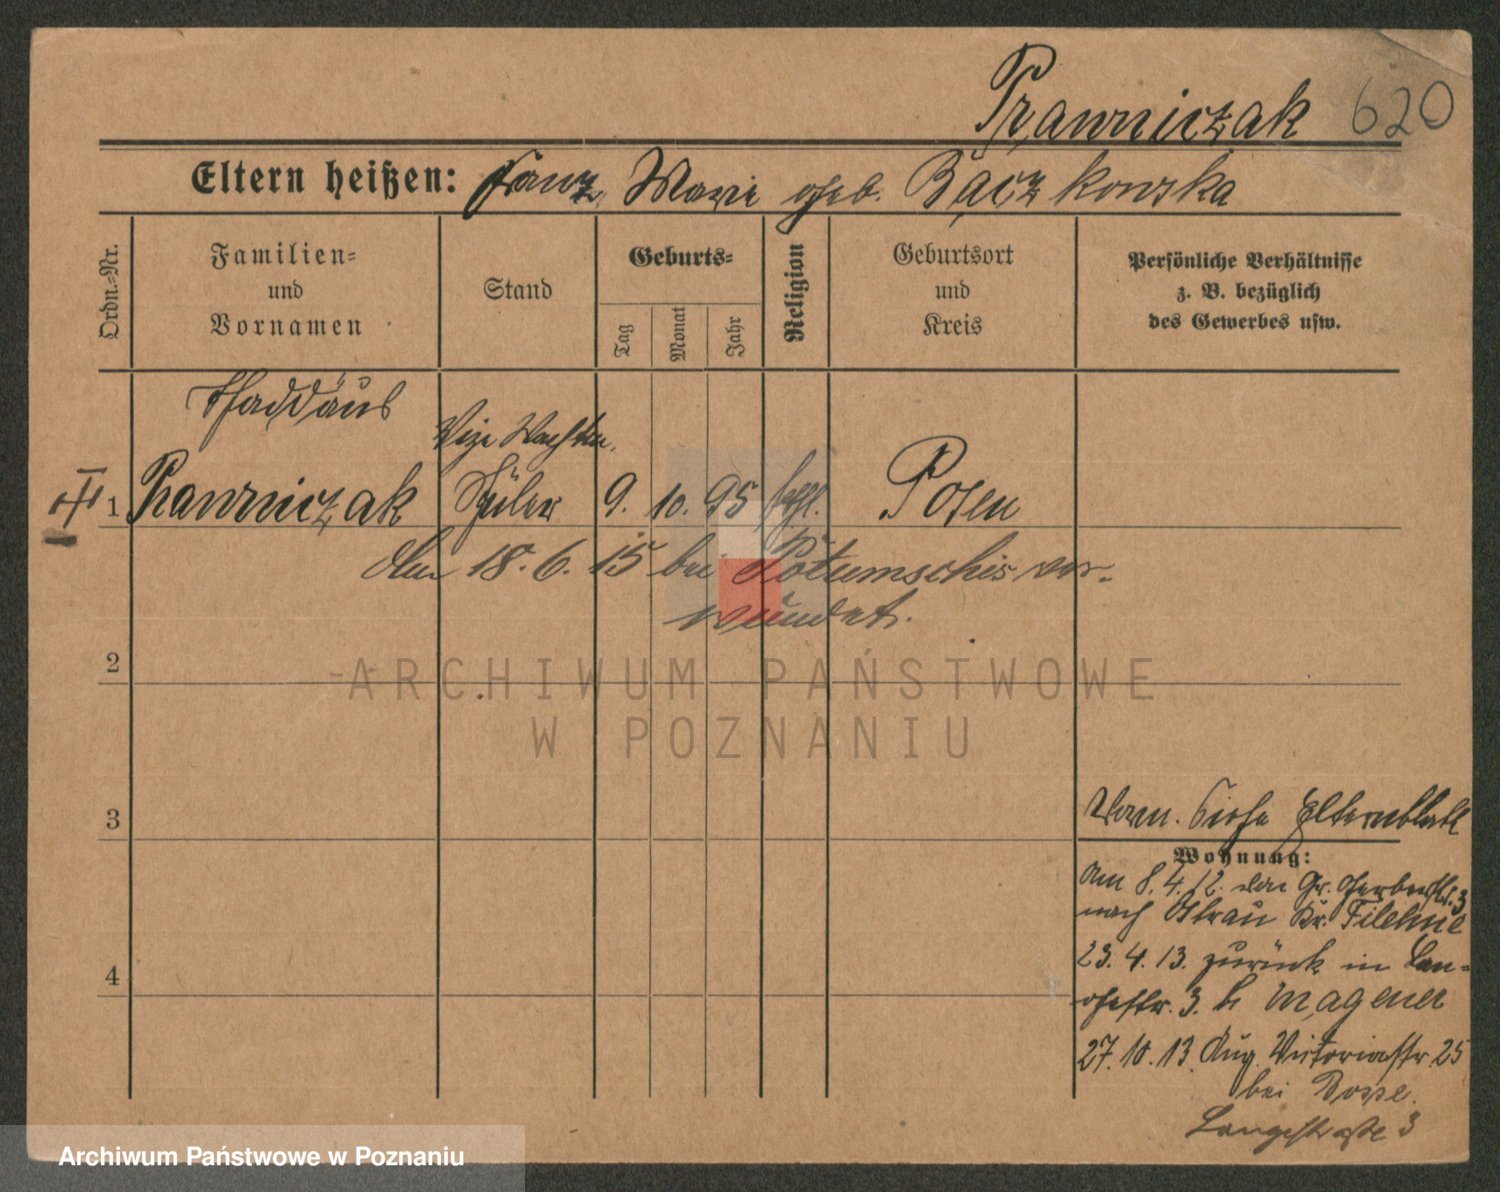 Prawniczak 620
Eltern heißen: Franz, Marie geb. Bączkowska
Ordn.-Nr.
Familien-
und
Vornamen
Stand
Geburts-
Tag
Monat
Jahr
Religion
Geburtsort
und
Kreis
Persönliche Verhältnisse
z. B. bezüglich
des Gewerbes usw.
Thaddäus
Vize Wachtm.
1 Prawniczak Schüler 9. 10. 95 kath. Posen
den 18. 6. 15 bei ver-
wundet.
2
ARCHIWUM PAŃSTWOWE
W POZNANIU
3
Vorm. Siehe Elternblatt
Wohnung:
am 8. 4. 12. von Gr. Gerberstr. 3
nach Kr. Filehne
23. 4. 13. zurück in Lan-
gestr. 3. b Wagener
4
27. 10. 13. Aug. Victoriastr. 25
bei
Langestraße 3
Archiwum Państwowe w Poznaniu